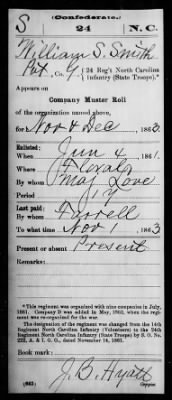 (Confederate.)
S 24 N.C.
William S. Smith
Pvt, Co. F, 24 Reg't North Carolina
Infantry (State Troops).*
Appears on
Company Muster Roll
of the organization named above,
for Nov & Dec, 1863.
Enlisted:
When Jun 4, 1861.
Where
By whom Maj Love
Period 1 y
Last paid:
By whom Farrell
To what time Nov 1, 1863
Present or absent Present
Remarks:
*This regiment was organized with nine companies in July,
1861. Company D was added in May, 1862, when the regi-
ment was re-organized for the war.
The designation of the regiment was changed from the 14th
Regiment North Carolina Infantry (Volunteers) to the 24th
Regiment North Carolina Infantry (State Troops) by S. O. No.
222, A. & I. G. O., dated November 14, 1861.
Book mark:
J. B. Hyatt
(642) Copyist.